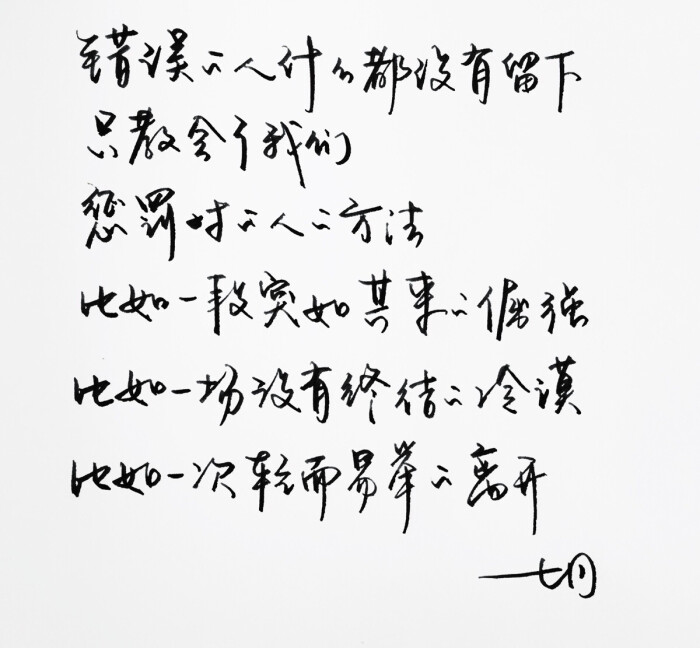 错误的人什么都没有留下
只教会了我们
惩罚对的人的方法
比如一段突如其来的倔强
比如一场没有终结的冷漠
比如一次轻而易举的离开
——七月